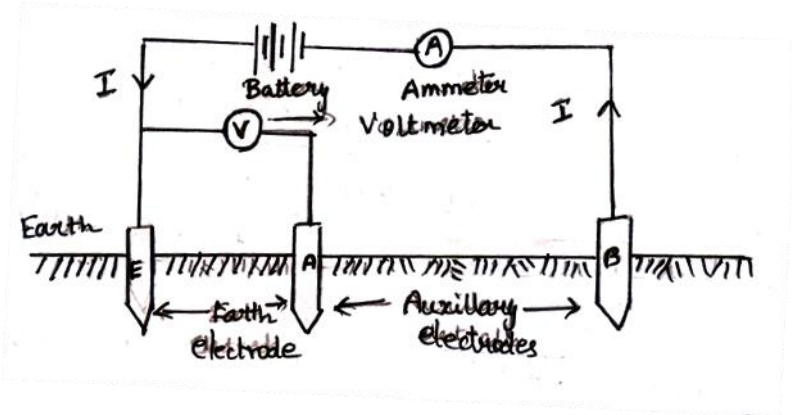 I
Battery
A
Ammeter
V
Voltmeter
I
Earth
E
A
B
Earth
electrode
Auxillary
electrodes